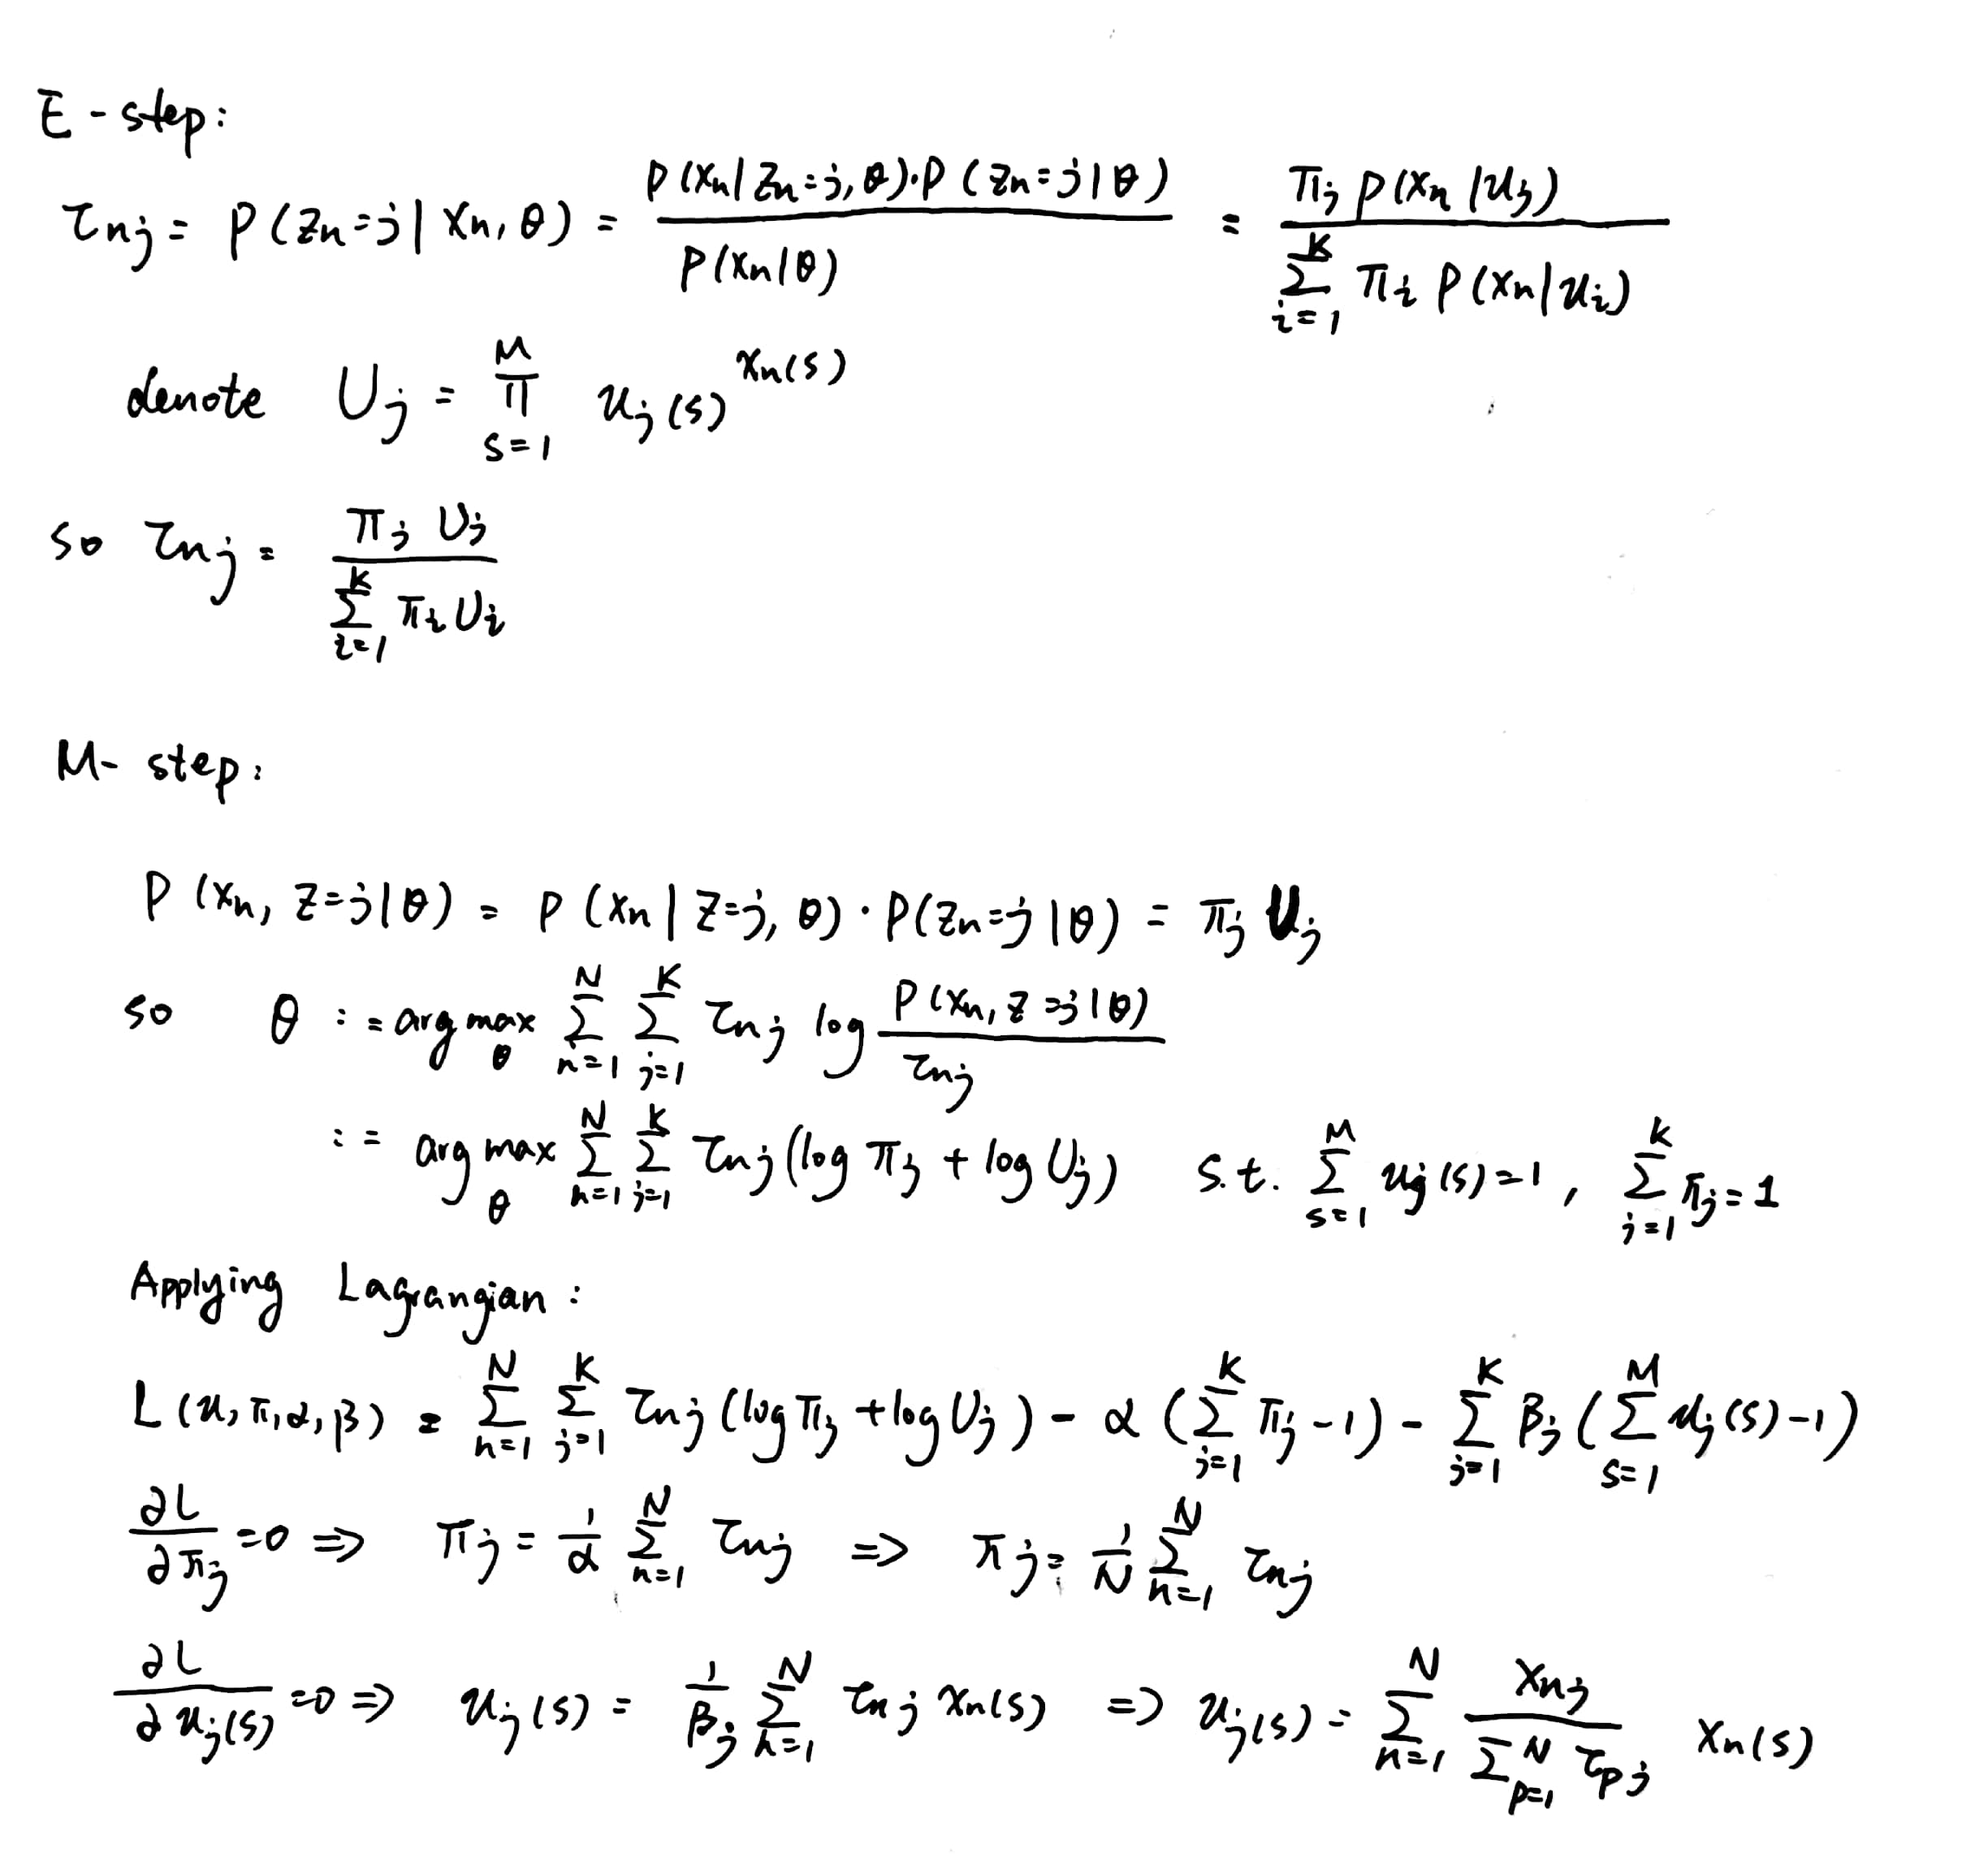 E-step:
τnj = P(zn=j | xn, θ) = P(xn | zn=j, θ)·P(zn=j | θ) / P(xn | θ) = πj P(xn | uj) / ∑_{i=1}^{K} πi P(xn | ui)
denote Uj = ∏_{s=1}^{M} uj(s)^{xn(s)}
so τnj = πj Uj / ∑_{i=1}^{K} πi Ui
M-step:
P(xn, z=j | θ) = P(xn | z=j, θ) · P(zn=j | θ) = πj Uj
so θ := arg max_θ ∑_{n=1}^{N} ∑_{j=1}^{K} τnj log P(xn, z=j | θ) / τnj
:= arg max_θ ∑_{n=1}^{N} ∑_{j=1}^{K} τnj (log πj + log Uj) s.t. ∑_{s=1}^{M} uj(s)=1, ∑_{j=1}^{K} πj=1
Applying Lagrangian:
L(u, π, α, β) = ∑_{n=1}^{N} ∑_{j=1}^{K} τnj (log πj + log Uj) - α (∑_{j=1}^{K} πj - 1) - ∑_{j=1}^{K} βj (∑_{s=1}^{M} uj(s) - 1)
∂L/∂πj = 0 ⇒ πj = 1/α ∑_{n=1}^{N} τnj ⇒ πj = 1/N ∑_{n=1}^{N} τnj
∂L/∂uj(s) = 0 ⇒ uj(s) = 1/βj ∑_{n=1}^{N} τnj xn(s) ⇒ uj(s) = ∑_{n=1}^{N} xnj / ∑_{p=1}^{N} τpj xn(s)